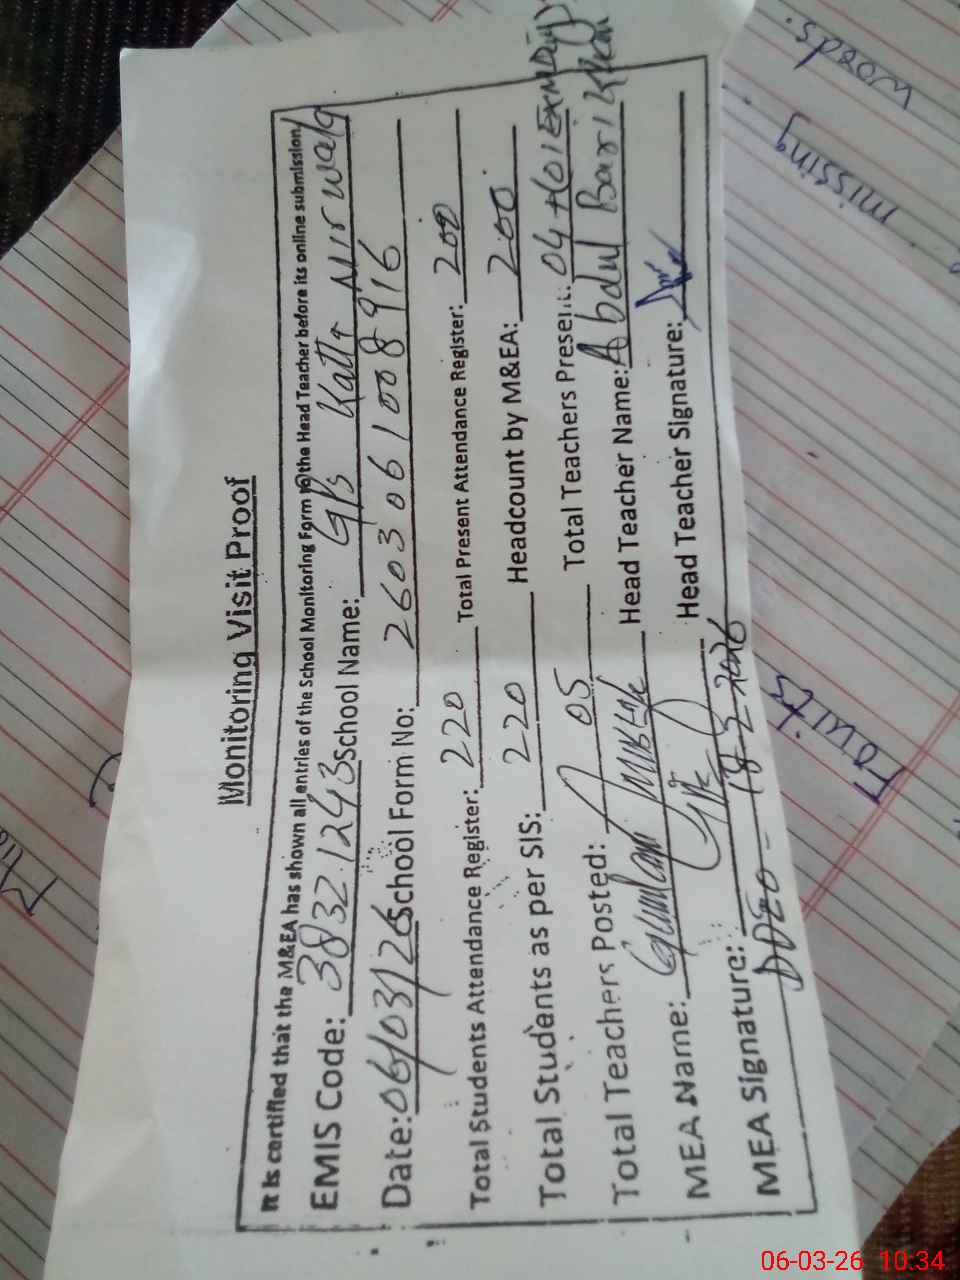 Monitoring Visit Proof
It is certified that the M&EA has shown all entries of the School Monitoring Form to the Head Teacher before its online submission
EMIS Code: 38321243 School Name: GPS Katta Mirwala
Date: 06/03/26 School Form No: 2603061008916
Total Students Attendance Register: 220 Total Present Attendance Register: 200
Total Students as per SIS: 220 Headcount by M&EA: 200
Total Teachers Posted: 05 Total Teachers Present: 04+01 EXM Duty
MEA Name: Ghulam Head Teacher Name: Abdul Bari Khan
MEA Signature: Head Teacher Signature:
DDEO 18-3-2026
words.
missing
Fruits
06-03-26 10:34